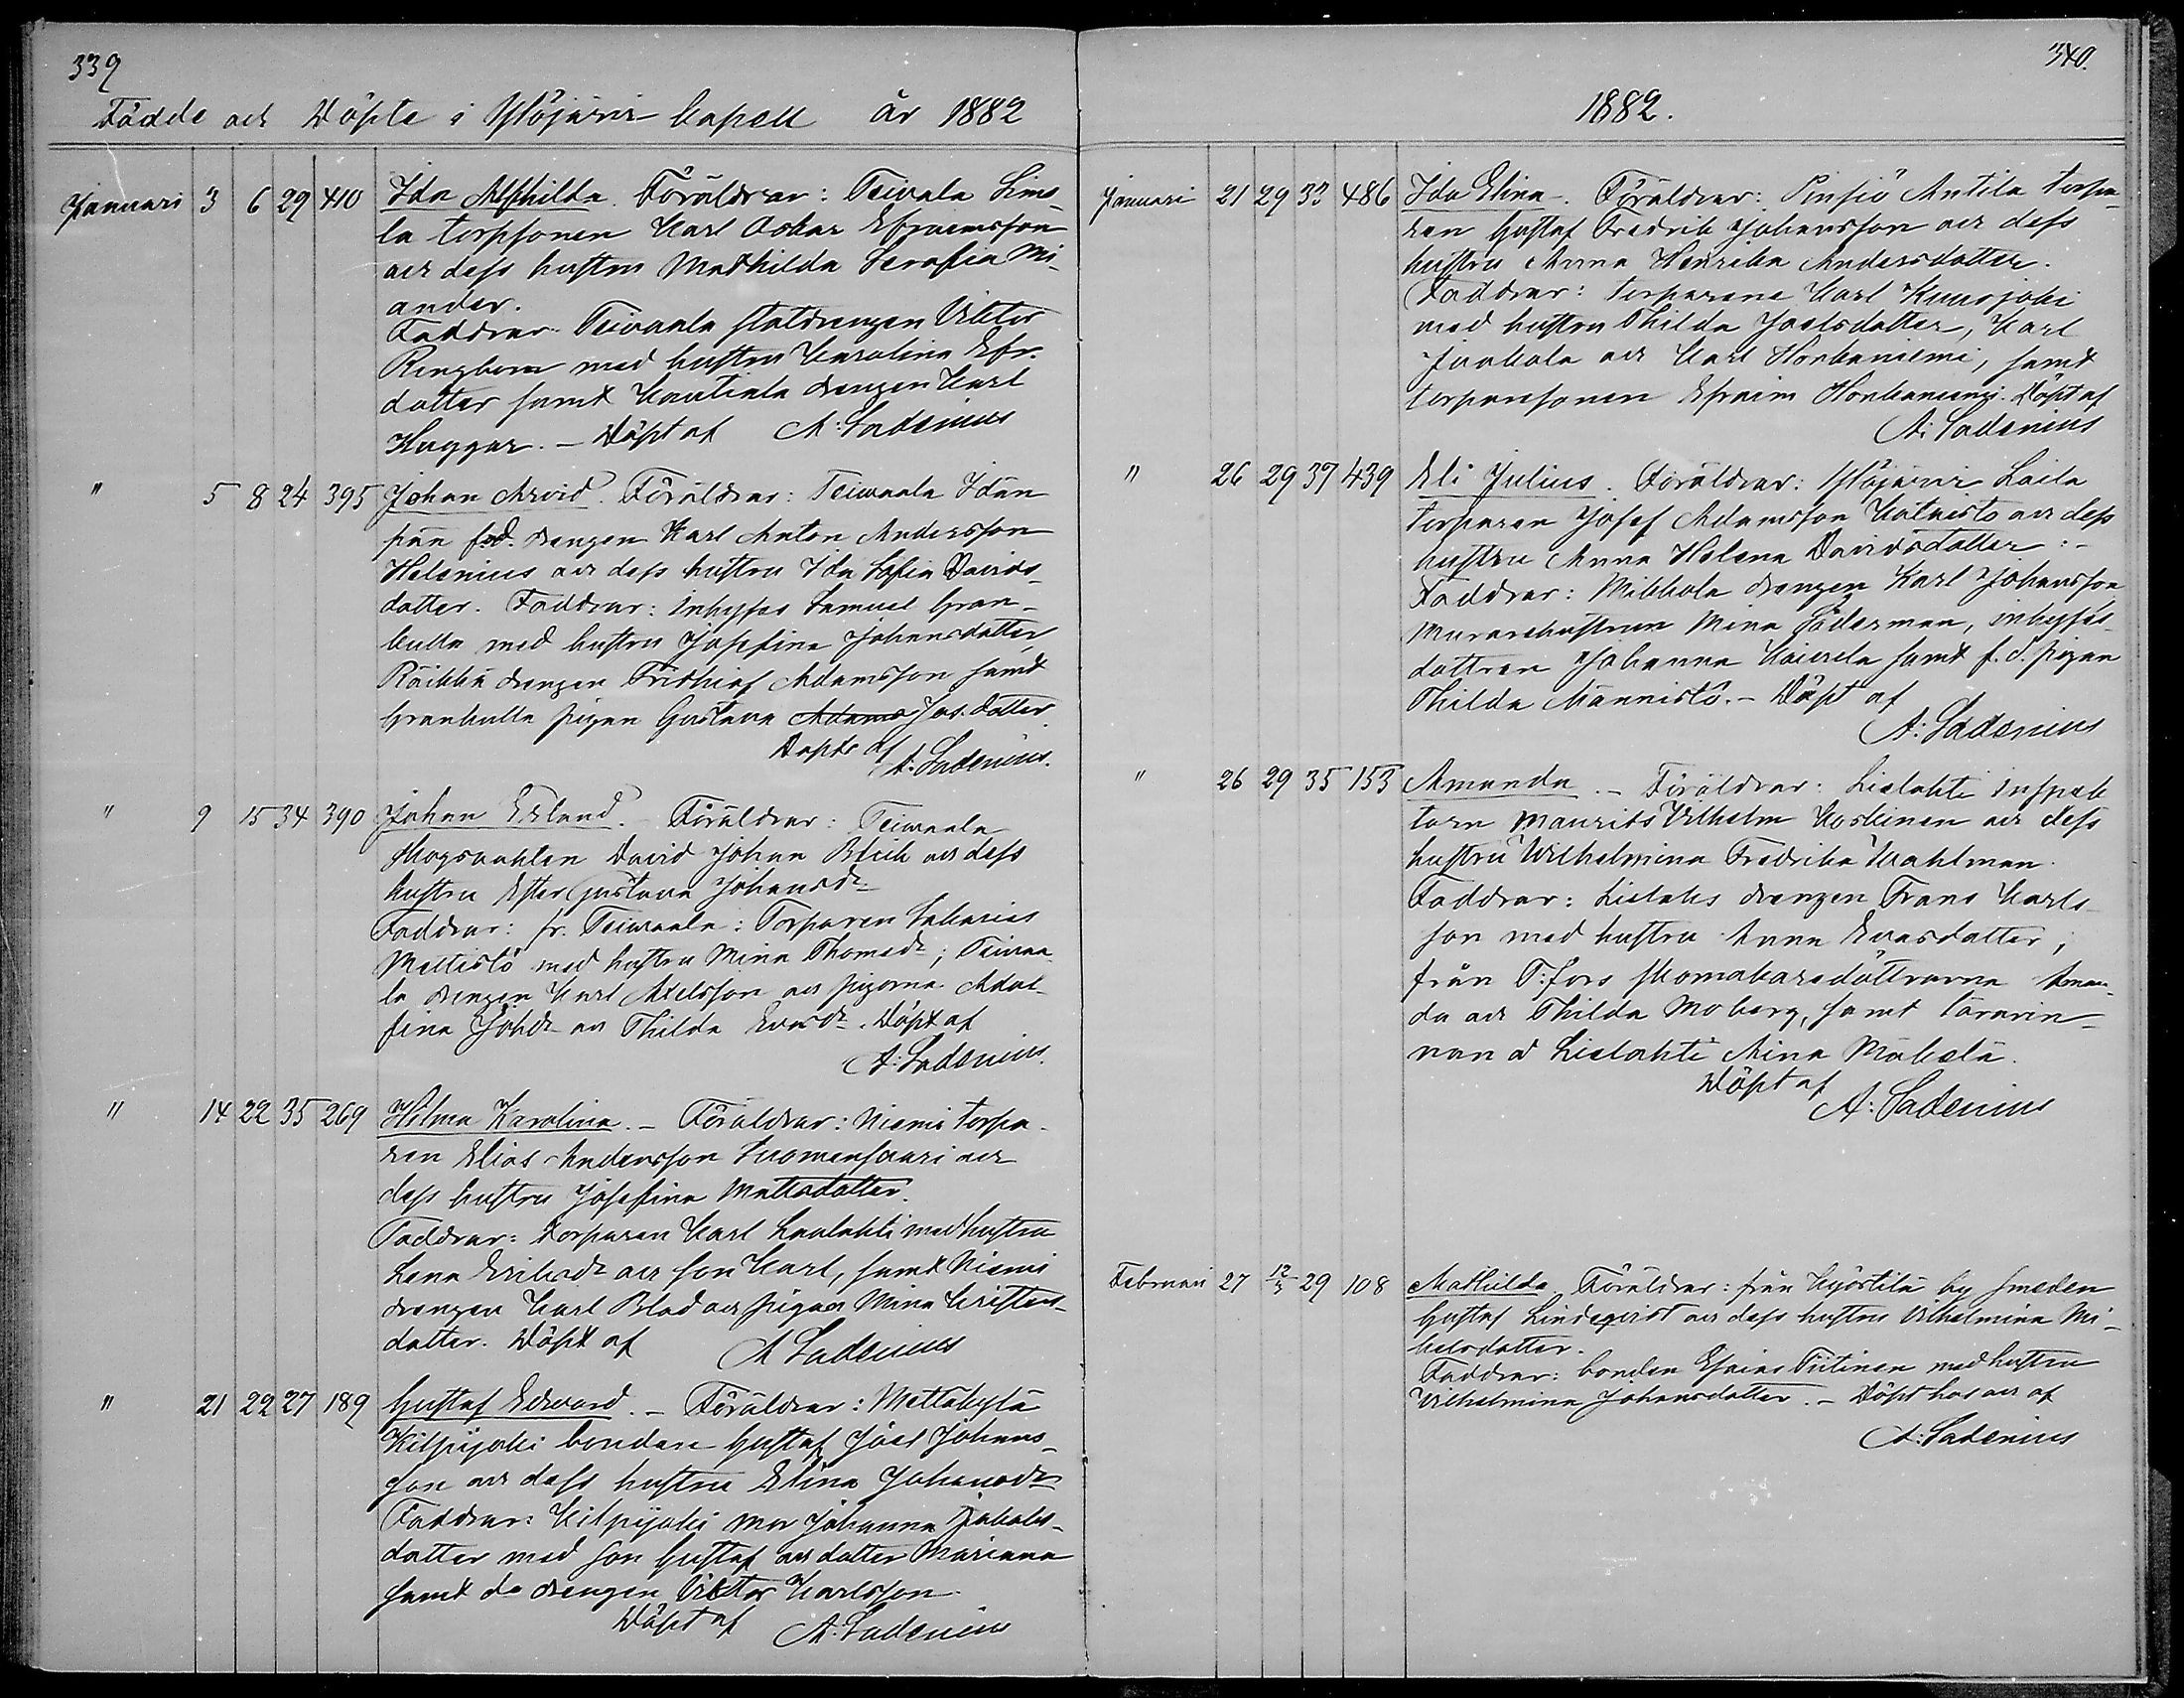 339
Födde och Döpte i Ylöjärvi Capell år 1882
Januari 3 6 29 410 Ida Mathilda. Föräldrar: Teivaala Lins-
la torpsonen Karl Oskar Efraimsson
och dess hustru Mathilda Serafia Ni-
ander.
Faddrar: Teivaala statdrengen Viktor
Ringbom med hustru Karolina Efr.
dotter samt drengen Karl
Huggar. – Döpt af A: Ladenius
" 5 8 24 395 Johan Arvid. Föräldrar: Teivaala Idän
pää f.d. drengen Karl Anton Andersson
Helenius och dess hustru Ida Sofia Davids-
dotter. Faddrar: Inhyses Samuel Gran-
kulla med hustru Josefina Johansdotter,
Räikkä drengen Fridhiof Adamsson samt
Grankulla pigan Gustava Adams Jos. dotter.
Döpte af A: Ladenius.
" 9 15 34 390 Johan Erland. – Föräldrar: Teivaala
skogvakten David Johan Blick och dess
hustru Ester Gustava Johansdr
Faddrar: fr. Teivaala: Torparen Sakarias
Mettistö med hustru Mina Thomasdr; Teivaa-
la drengen Karl Axelsson och pigorna Adol-
fina Johdr och Thilda Evasdr. Döpt af
A: Ladenius.
" 14 22 35 269 Hilma Karolina. – Föräldrar: Niemi torpa-
ren Elias Andersson Tuomensaari och
dess hustru Josefina Mattsdotter.
Faddrar: Torparen Karl Laulahti med hustru
Lena Eriksdr och son Karl, samt Niemi
drengen Karl Blad och pigan Mina Kristers-
dotter. Döpt af A Ladenius
" 21 22 27 189 Gustaf Edvard. – Föräldrar: Mettäkylä
Kilpijoki bonden Gustaf Joel Johans-
son och dess hustru Elina Johansdr
Faddrar: Kilpijoki mor Johanna Jakobs-
dotter med son Gustaf och dotter Mariana
samt do drengen Viktor Karlsson.
Döpt af A: Ladenius
340.
1882.
Januari 21 29 33 486 Ida Elina. Föräldrar: Pinsiö Antila torpa-
ren Gustaf Fredrik Johansson och dess
hustru Anna Henrika Andersdotter.
Faddrar: torparene Karl Kuusjoki
med hustru Thilda Joelsdotter, Karl
Jaakola och Karl Honkaniemi, samt
torparsonen Efraim Honkaniemi. Döpt af
A: Ladenius
" 26 29 37 439 Eli Julius. Föräldrar: Ylöjärvi Laila
torparen Josef Adamsson Katvisto och dess
hustru Anna Helena Davidsdotter: –
Faddrar: Mikkola drengen Karl Johansson,
Murarehustrun Mina Söderman, inhyses-
dottren Johanna Kaivela samt f.d. pigan
Thilda Männistö. – Döpt af
A: Ladenius
" 26 29 35 153 Amanda. – Föräldrar: Lielahti Inspek
toren Maurits Vilhelm Koskinen och dess
hustru Wilhelmina Fredrika Wahlman.
Faddrar: Lielaks drengen Frans Karls-
son med hustru Anna Evasdotter;
från T:fors skomakaredöttrarna Aman-
da och Thilda Moberg, samt lärarin-
nan à Lielahti Mina Mäkelä.
Döpt af
A: Ladenius
Februari 27 12/3 29 108 Mathilda. Föräldrar: från Kyöstilä by smeden
Gustaf Lindqvist och dess hustru Vilhelmina Mi-
kelsdotter.
Faddrar: bonden Esaias Tiitinen med hustru
Vilhelmina Johansdotter. – Döpt hos och af
A: Ladenius